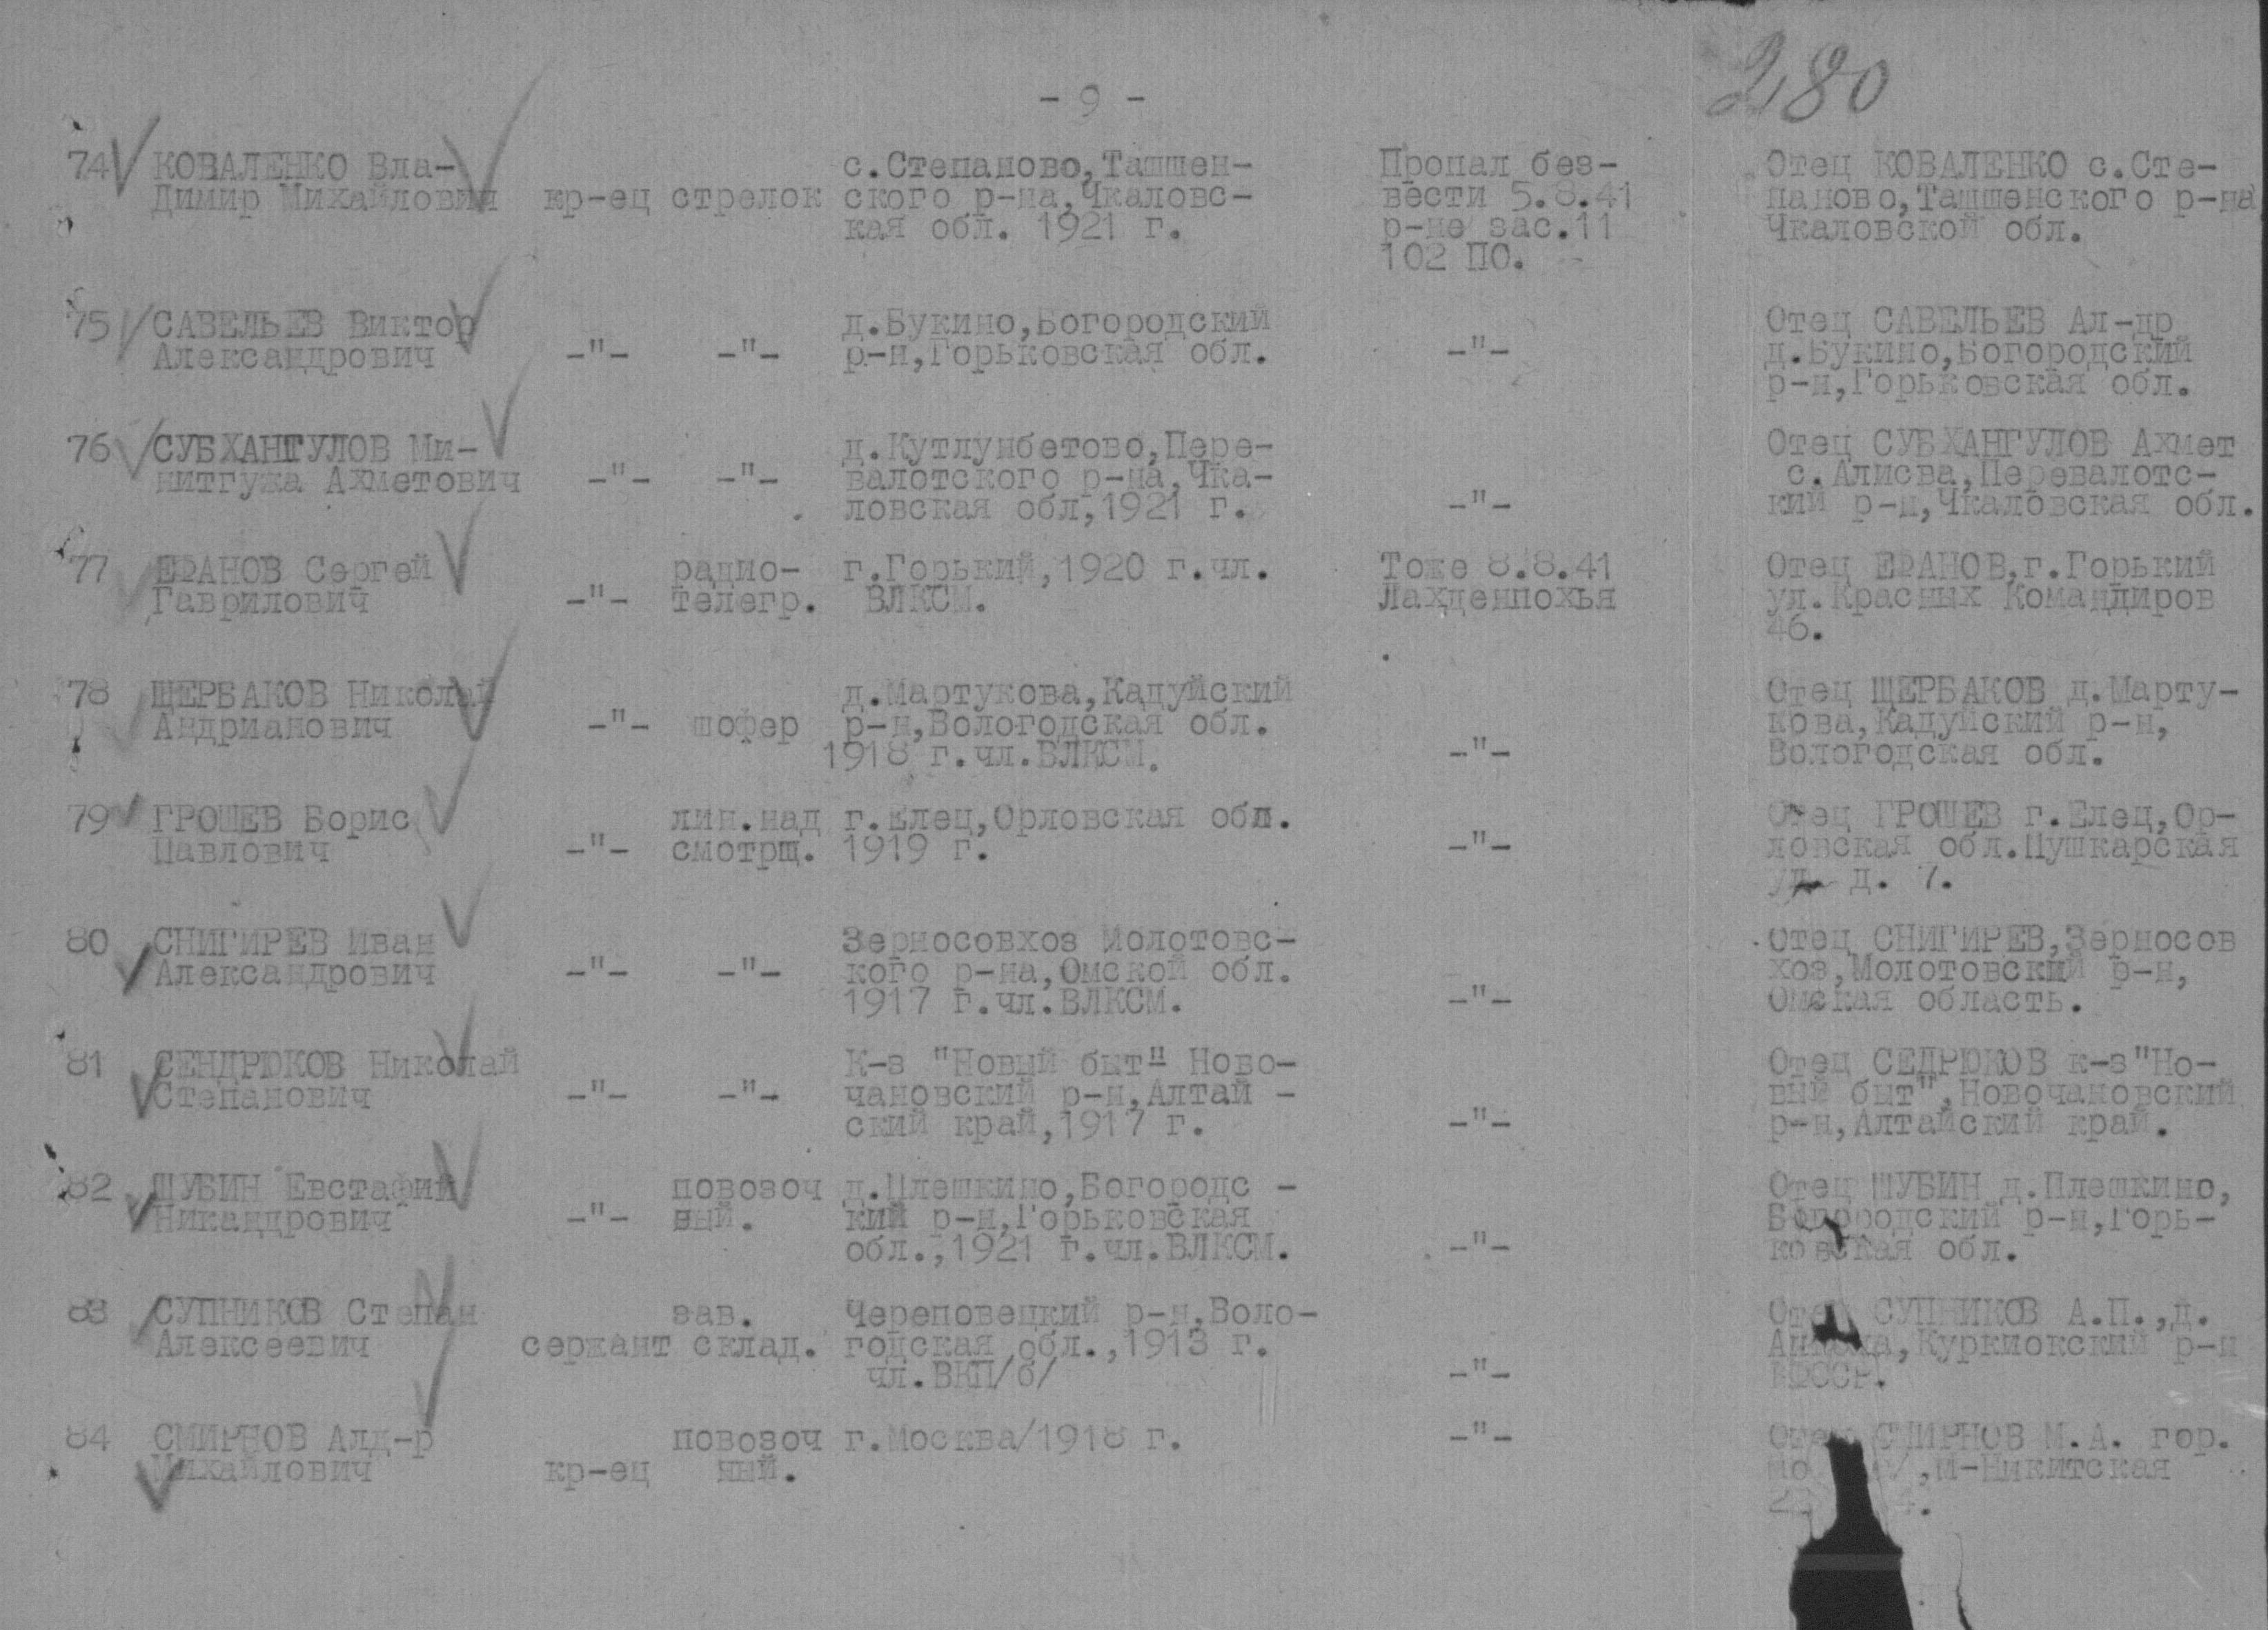 280
- 9 -
74 КОВАЛЕНКО Вла- с.Степаново,Ташшен- Пропал без- Отец КОВАЛЕНКО с.Сте-
Димир Михайлович кр-ец стрелок ского р-на,Чкаловс- вести 5.8.41 паново,Ташшенского р-на
кая обл. 1921 г. р-не зас.11 Чкаловской обл.
102 ПО.
75 САВЕЛЬЕВ Виктор д.Букино,Богородский Отец САВЕЛЬЕВ Ал-др
Александрович -"- -"- р-н,Горьковская обл. -"- д.Букино,Богородский
р-н,Горьковская обл.
76 СУБХАНГУЛОВ Ми- д.Кутлумбетово,Пере- Отец СУБХАНГУЛОВ Ахмет
нитгужа Ахметович -"- -"- валотского р-на,Чка- с.Алисва,Перевалотс-
ловская обл,1921 г. -"- кий р-н,Чкаловская обл.
77 ЕФАНОВ Сергей радио- г.Горький,1920 г.чл. Тоже 8.8.41 Отец ЕФАНОВ,г.Горький
Гаврилович -"- телегр. ВЛКСМ. Лахденпохья ул.Красных Командиров
46.
78 ЩЕРБАКОВ Николай д.Мартукова,Кадуйский Отец ЩЕРБАКОВ д.Марту-
Андрианович -"- шофер р-н,Вологодская обл. кова,Кадуйский р-н,
1918 г.чл.ВЛКСМ. -"- Вологодская обл.
79 ГРОШЕВ Борис лин.над г.Елец,Орловская обл. Отец ГРОШЕВ г.Елец,Ор-
Павлович -"- смотрщ. 1919 г. -"- ловская обл.Пушкарская
ул. д. 7.
80 СНИГИРЕВ Иван Зерносовхоз Молотовс- Отец СНИГИРЕВ,Зерносов
Александрович -"- -"- кого р-на,Омской обл. хоз,Молотовский р-н,
1917 г.чл.ВЛКСМ. -"- Омская область.
81 СЕНДРЮКОВ Николай К-з "Новый быт" Ново- Отец СЕДРЮКОВ к-з"Но-
Степанович -"- -"- чановский р-н,Алтай - вый быт",Новочановский
ский край,1917 г. -"- р-н,Алтайский край.
82 ШУБИН Евстафий повозоч д.Плешкино,Богородс - Отец ШУБИН д.Плешкино,
Никандрович -"- ный. кий р-н,Горьковская Богородский р-н,Горь-
обл.,1921 г.чл.ВЛКСМ. -"- ковская обл.
83 СУПНИКОВ Степан зав. Череповецкий р-н,Воло- Отец СУПНИКОВ А.П.,д.
Алексеевич сержант склад. годская обл.,1913 г. Куркиокский р-н
чл.ВКП/б/ -"- КФССР.
84 СМИРНОВ Алд-р повозоч г.Москва/1918 г. -"- Отец СМИРНОВ М.А. гор.
Михайлович кр-ец ный. М-Никитская